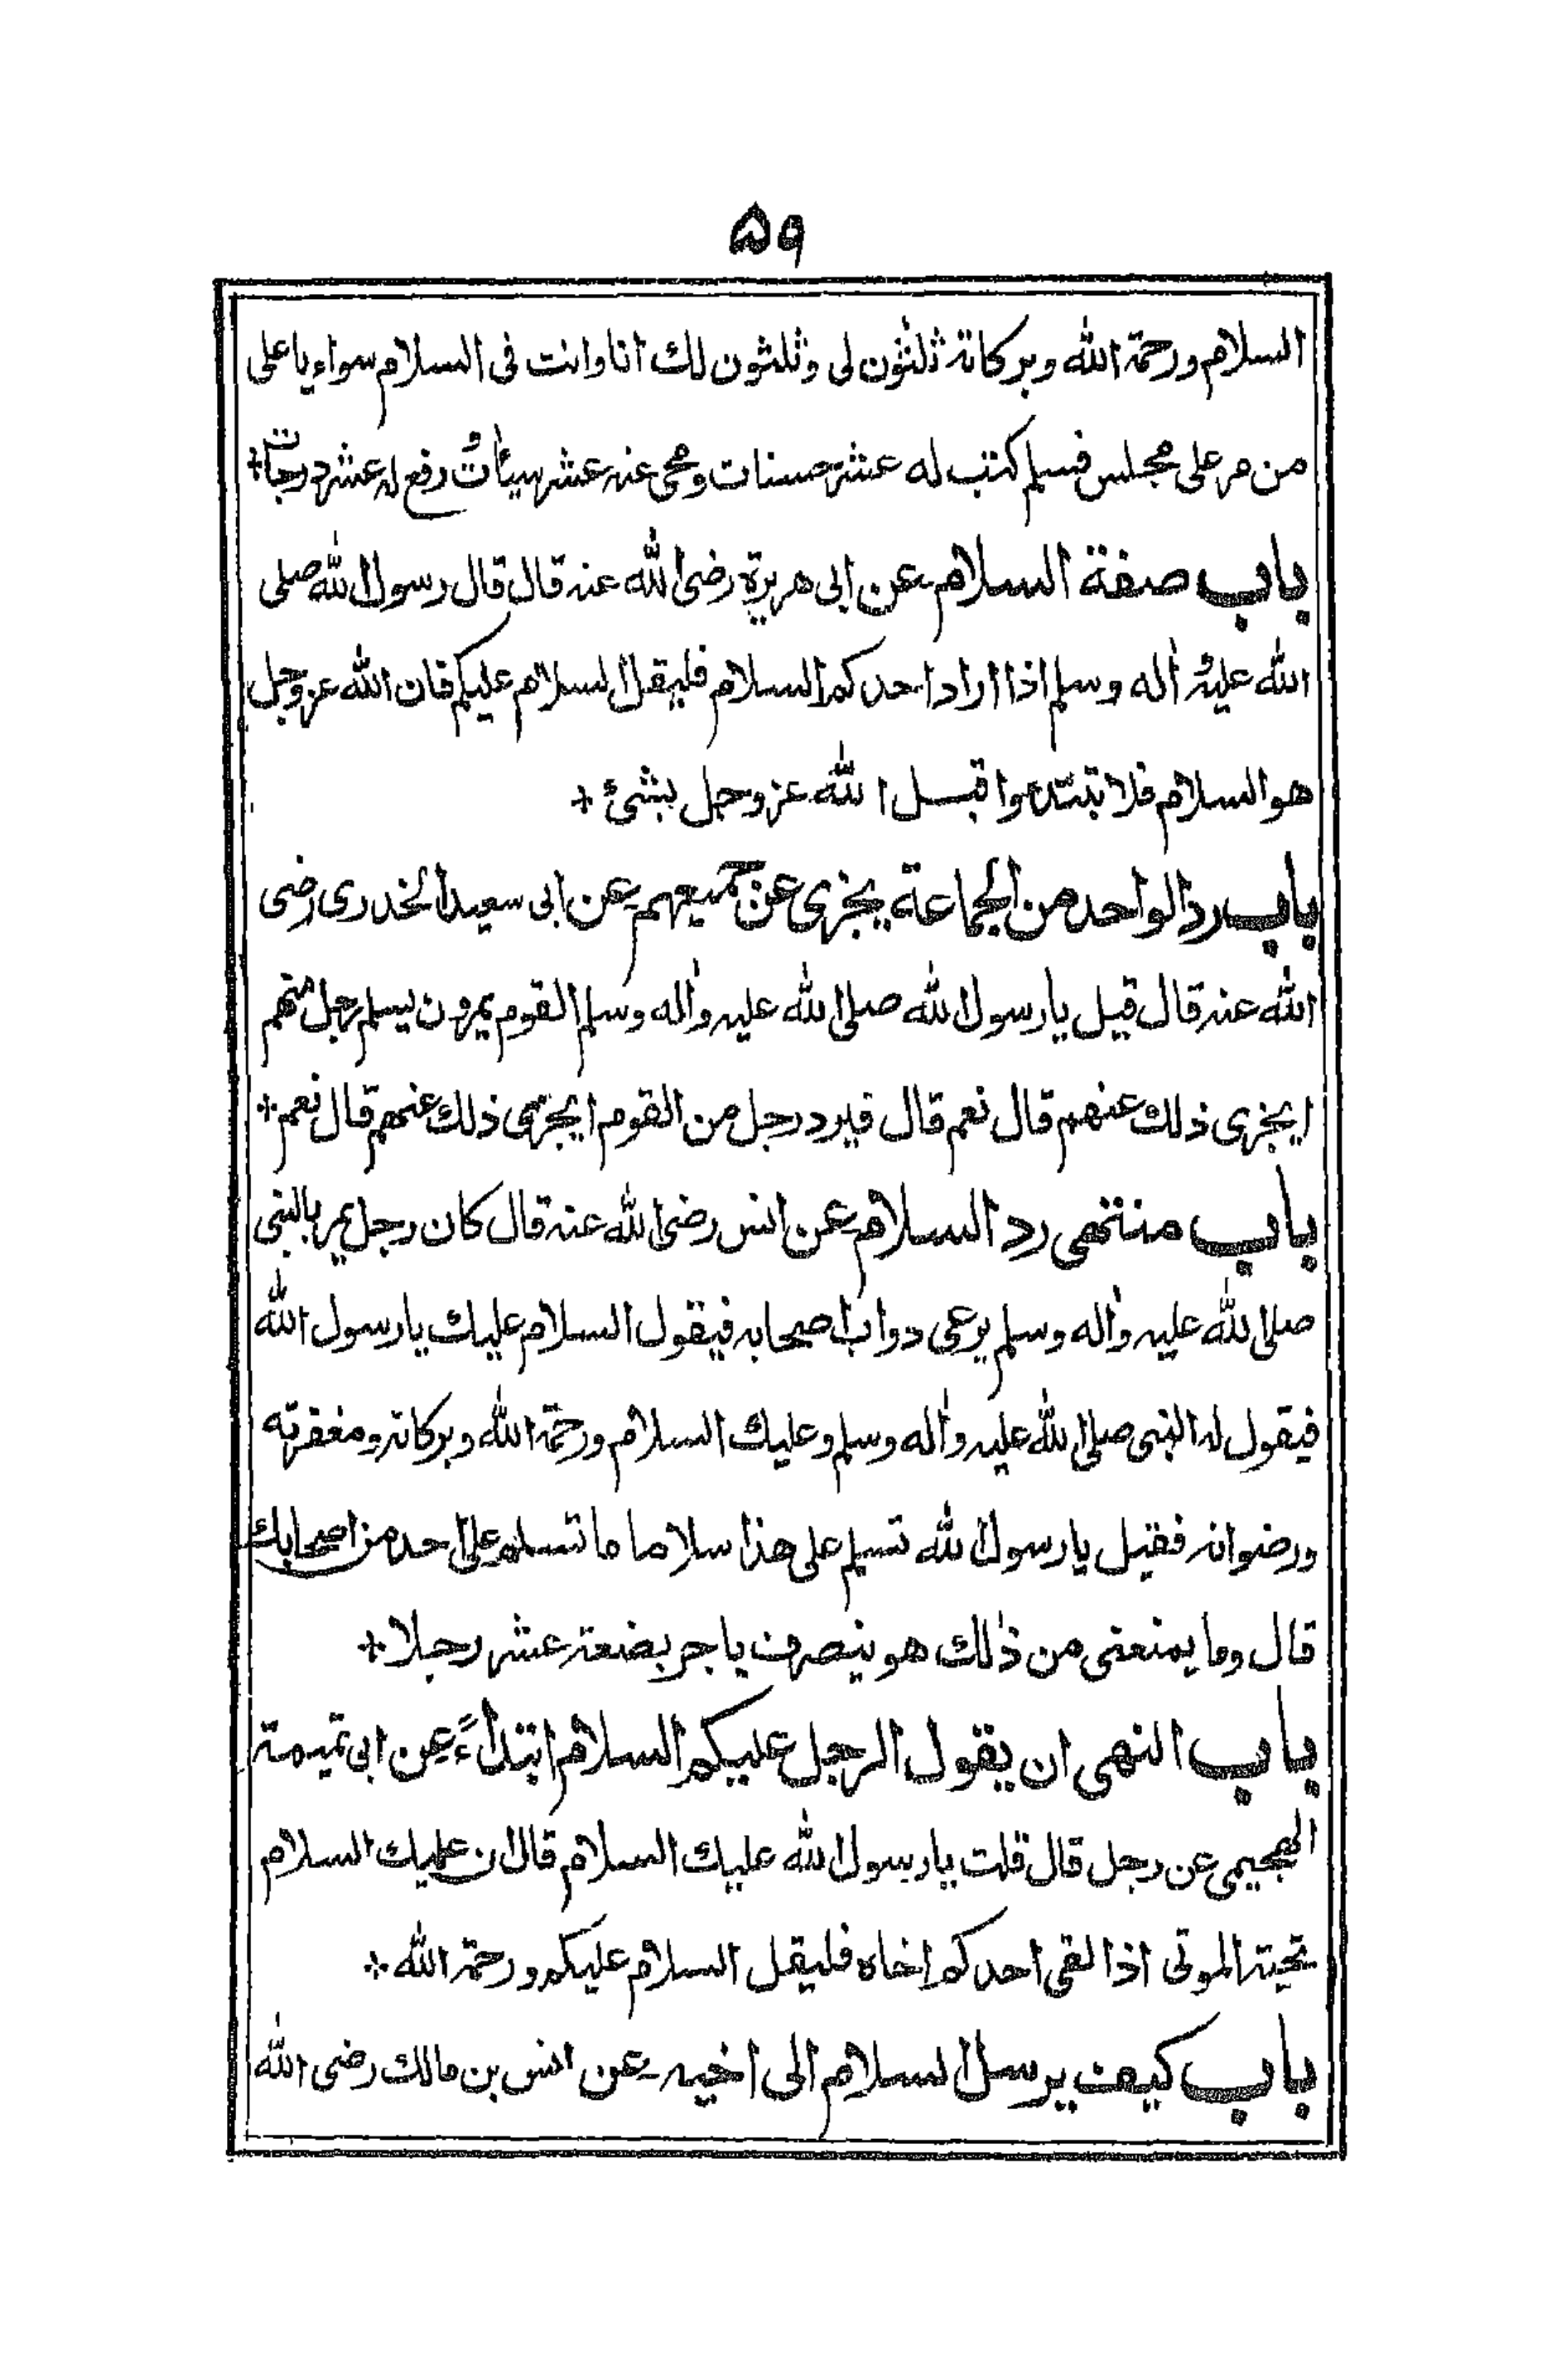 ۵۹
السلام ورحمة الله وبركاته ثلثون لى وثلثون لك انا وانت فى السلام سواء ياعلى
من مر على مجلس فسلم كتب له عشر حسنات ومحى عنه عشر سيئات و رفع له عشر درجات +
باب صفة السلام عن ابى هريرة رضى الله عنه قال قال رسول الله صلى
الله عليه واله وسلم اذا اراد احدكم السلام فليقل السلام عليكم فان الله عز وجل
هو السلام فلا تبتدءوا قبل الله عز وجل بشئ +
باب رد الواحد من الجماعة يجزى عن جميعهم عن ابى سعيد الخدرى رضى
الله عنه قال قيل يا رسول الله صلى الله عليه واله وسلم القوم يمرون يسلم رجل منهم
ايجزى ذلك عنهم قال نعم قال فيرد رجل من القوم ايجزى ذلك عنهم قال نعم +
باب منتهى رد السلام عن انس رضى الله عنه قال كان رجل يمر بالنبى
صلى الله عليه واله وسلم يرعى دواب اصحابه فيقول السلام عليك يا رسول الله
فيقول له النبى صلى الله عليه واله وسلم وعليك السلام ورحمة الله وبركاته ومغفرته
ورضوانه فقيل يا رسول الله تسلم على هذا سلاما ما تسلمه على احد من اصحابك
قال وما يمنعنى من ذلك هو ينصرف باجر بضعة عشر رجلا +
باب النهى ان يقول الرجل عليكم السلام ابتداءً عن ابى تميمة
الهجيمى عن رجل قال قلت يا رسول الله عليك السلام قال ان عليك السلام
تحية الموتى اذا لقى احدكم اخاه فليقل السلام عليكم ورحمة الله +
باب كيف يرسل السلام الى اخيه عن انس بن مالك رضى الله